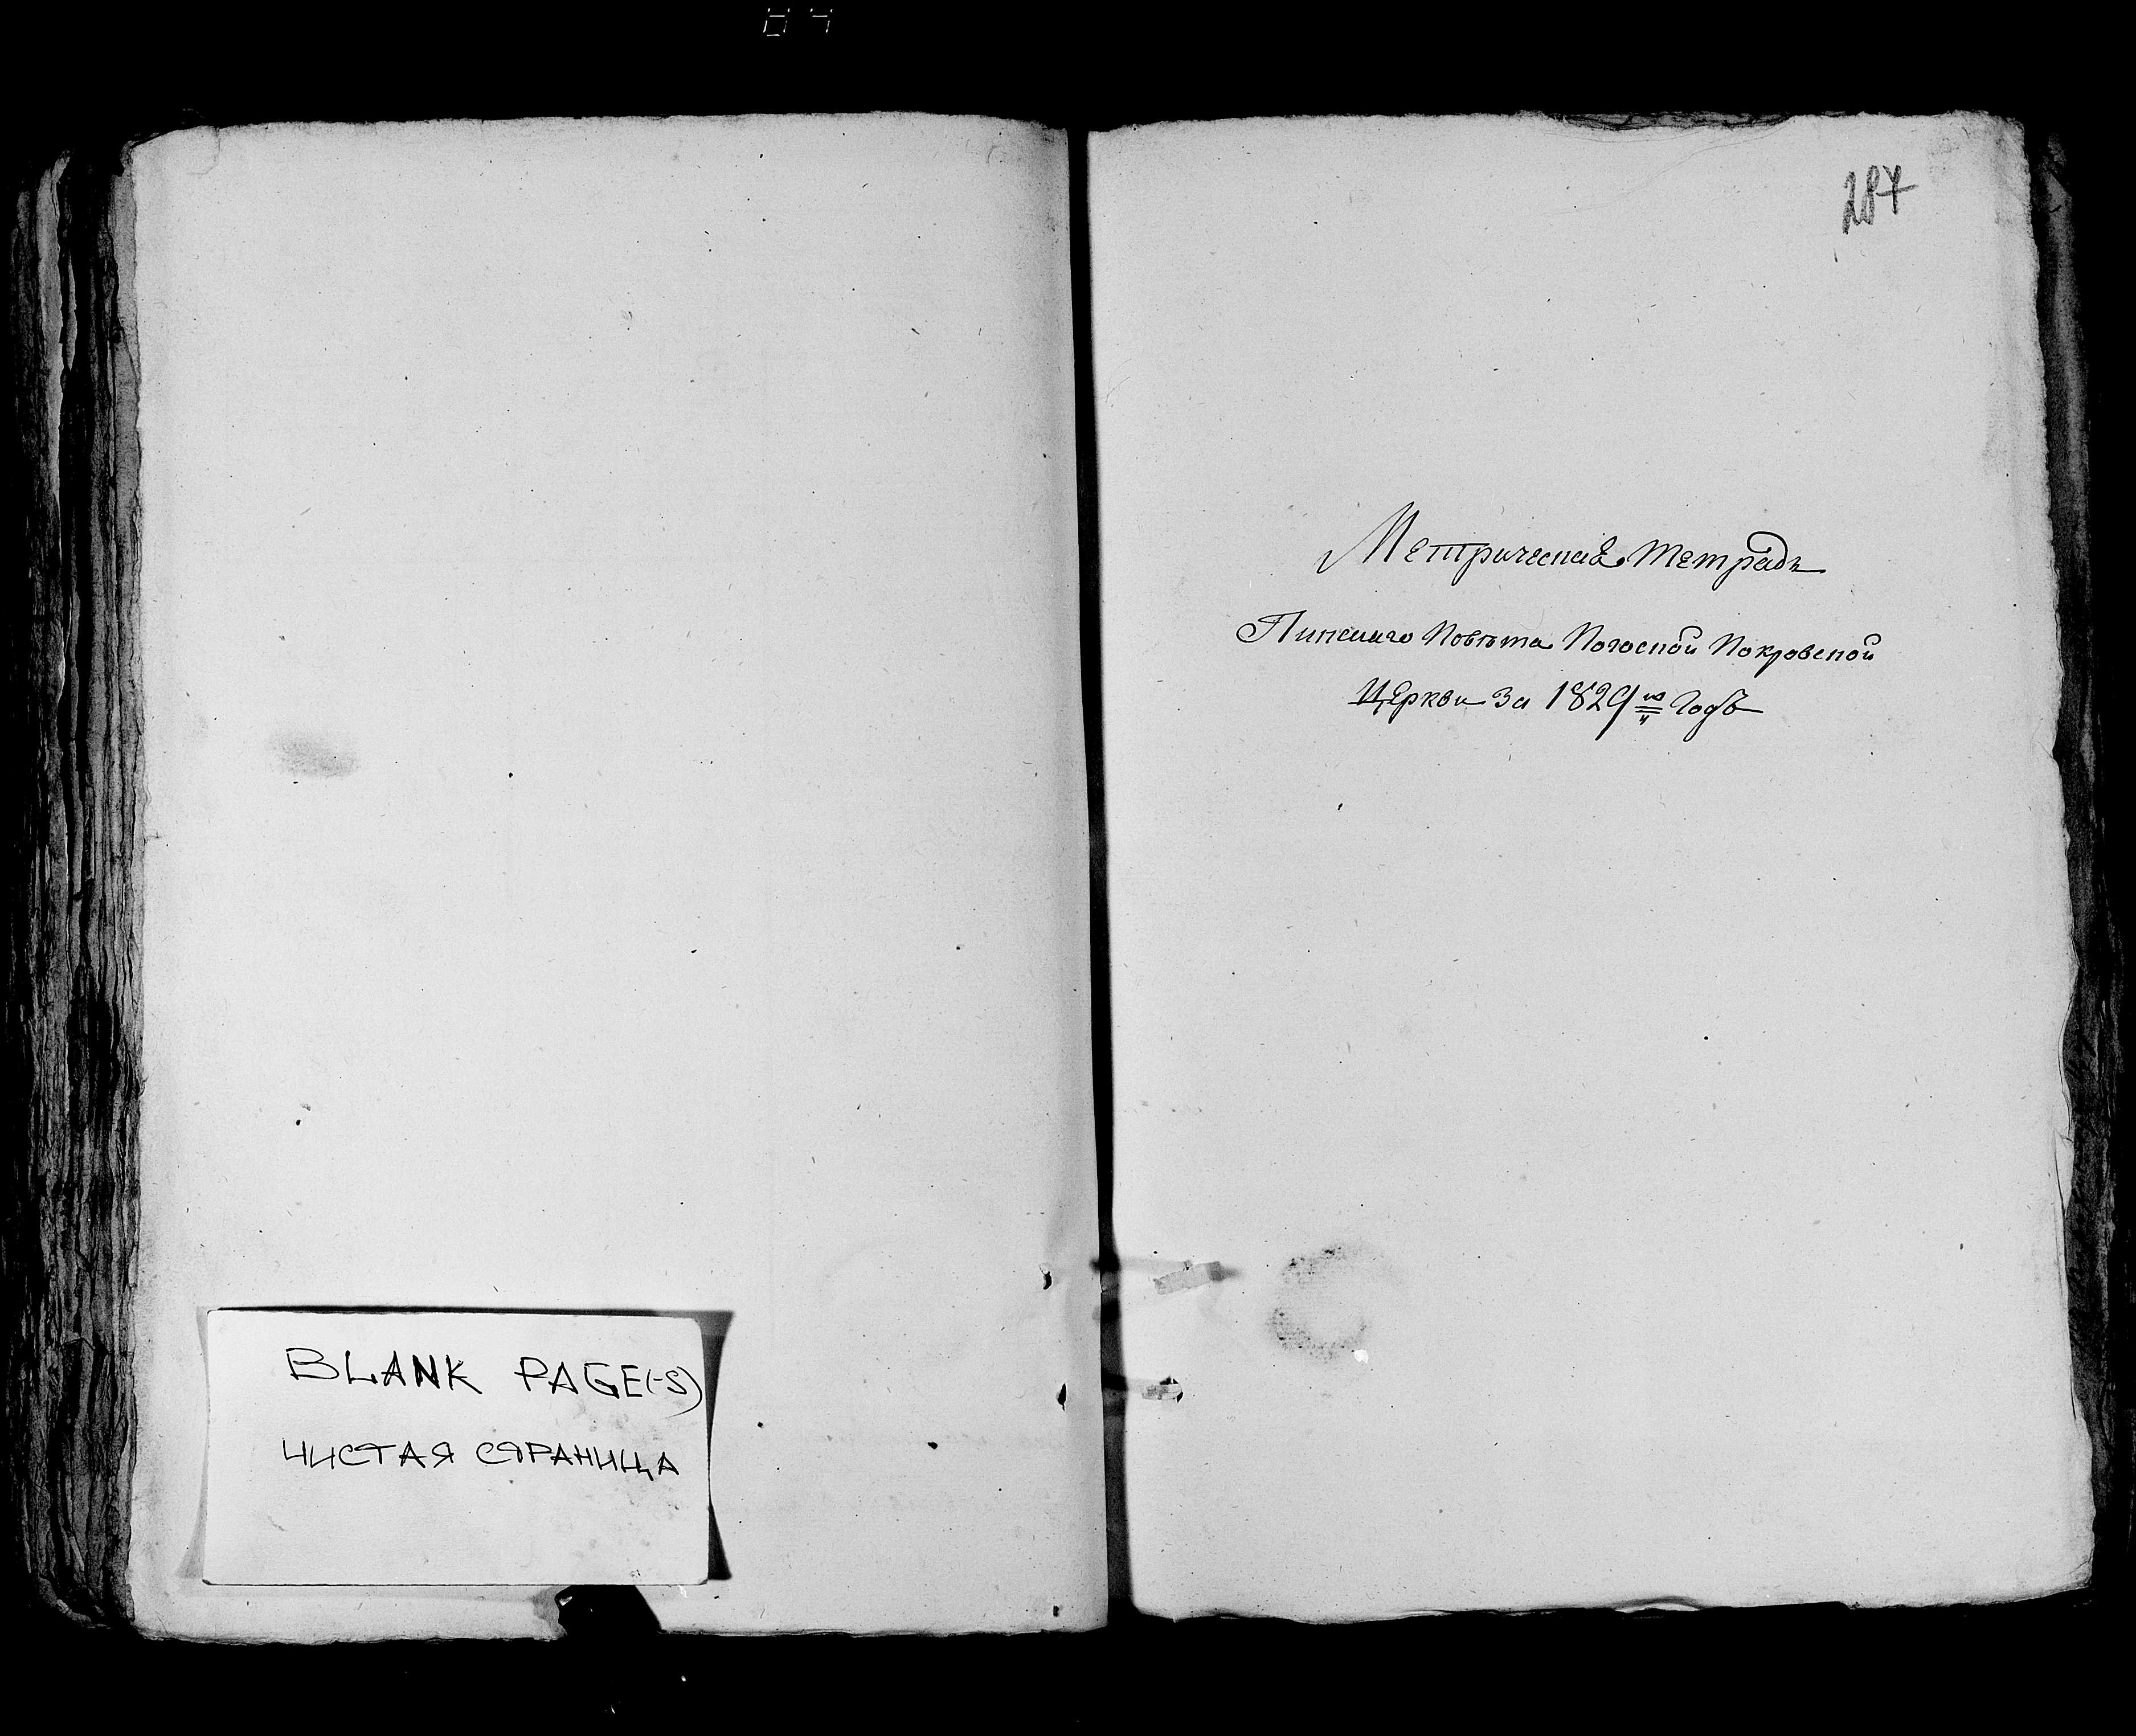 BLANK PAGE(-S)
ЧИСТАЯ СТРАНИЦА
287
Метрическая тетрадь
Пинскаго Повѣта Погоской Покровской
Церкви за 1829й Годъ